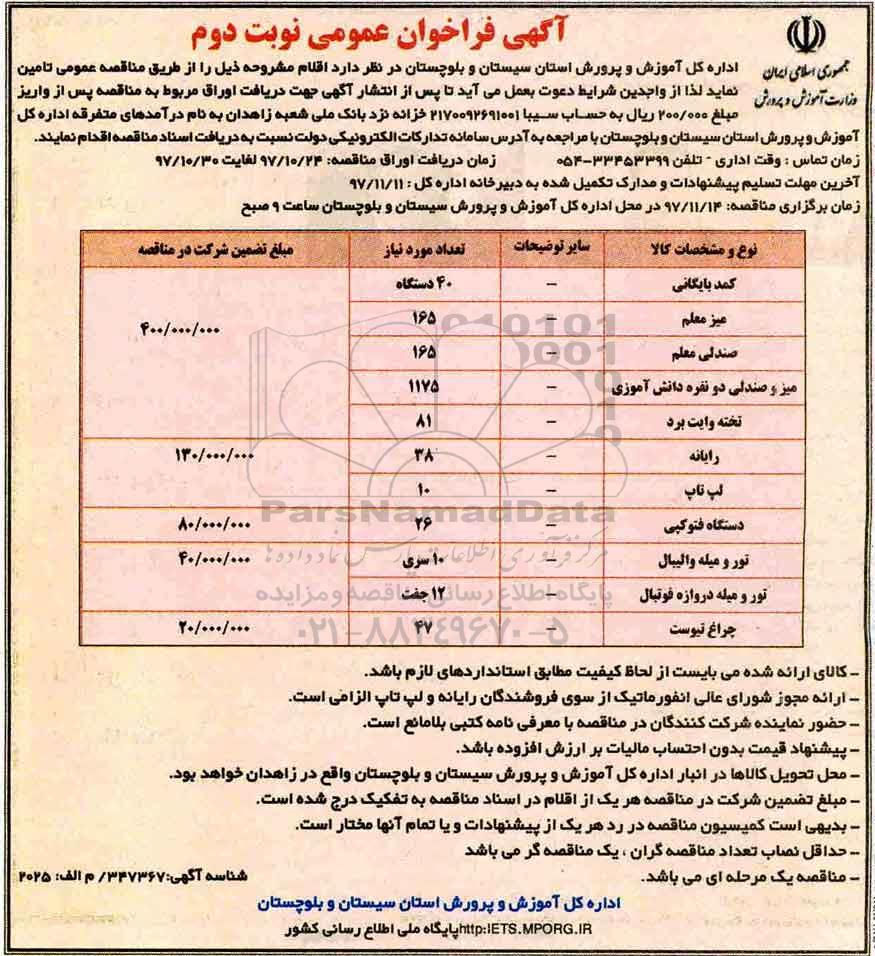 آگهی فراخوان عمومی نوبت دوم
جمهوری اسلامی ایران
وزارت آموزش و پرورش
اداره کل آموزش و پرورش استان سیستان و بلوچستان در نظر دارد اقلام مشروحه ذیل را از طریق مناقصه عمومی تامین
نماید لذا از واجدین شرایط دعوت بعمل می آید تا پس از انتشار آگهی جهت دریافت اوراق مربوط به مناقصه پس از واریز
مبلغ ۲۰۰/۰۰۰ ریال به حساب سیبا ۲۱۷۰۰۹۲۶۹۱۰۰۱ خزانه نزد بانک ملی شعبه زاهدان به نام درآمدهای متفرقه اداره کل
آموزش و پرورش استان سیستان و بلوچستان با مراجعه به آدرس سامانه تدارکات الکترونیکی دولت نسبت به دریافت اسناد مناقصه اقدام نمایند.
زمان تماس : وقت اداری - تلفن ۳۳۴۵۳۳۹۹-۰۵۴ زمان دریافت اوراق مناقصه: ۹۷/۱۰/۲۴ لغایت ۹۷/۱۰/۳۰
آخرین مهلت تسلیم پیشنهادات و مدارک تکمیل شده به دبیرخانه اداره کل : ۹۷/۱۱/۱۱
زمان برگزاری مناقصه: ۹۷/۱۱/۱۴ در محل اداره کل آموزش و پرورش سیستان و بلوچستان ساعت ۹ صبح
نوع و مشخصات کالا سایر توضیحات تعداد مورد نیاز مبلغ تضمین شرکت در مناقصه
کمد بایگانی - ۴۰ دستگاه
میز معلم - ۱۶۵ ۴۰۰/۰۰۰/۰۰۰
صندلی معلم - ۱۶۵
میز و صندلی دو نفره دانش آموزی - ۱۱۷۵
تخته وایت برد - ۸۱
رایانه - ۳۸ ۱۳۰/۰۰۰/۰۰۰
لپ تاپ - ۱۰
دستگاه فتوکپی - ۲۶ ۸۰/۰۰۰/۰۰۰
تور و میله والیبال - ۱۰ سری ۴۰/۰۰۰/۰۰۰
تور و میله دروازه فوتبال - ۱۲ جفت
چراغ تیوست - ۴۷ ۲۰/۰۰۰/۰۰۰
ParsNamadData
مرکز فرآوری اطلاعات پارس نماد داده ها
پایگاه اطلاع رسانی مناقصه و مزایده
۰۲۱-۸۸۳۴۹۶۷۰-۵
- کالای ارائه شده می بایست از لحاظ کیفیت مطابق استانداردهای لازم باشد.
- ارائه مجوز شورای عالی انفورماتیک از سوی فروشندگان رایانه و لپ تاپ الزامی است.
- حضور نماینده شرکت کنندگان در مناقصه با معرفی نامه کتبی بلامانع است.
- پیشنهاد قیمت بدون احتساب مالیات بر ارزش افزوده باشد.
- محل تحویل کالاها در انبار اداره کل آموزش و پرورش سیستان و بلوچستان واقع در زاهدان خواهد بود.
- مبلغ تضمین شرکت در مناقصه هر یک از اقلام در اسناد مناقصه به تفکیک درج شده است.
- بدیهی است کمیسیون مناقصه در رد هر یک از پیشنهادات و یا تمام آنها مختار است.
- حداقل نصاب تعداد مناقصه گران ، یک مناقصه گر می باشد
- مناقصه یک مرحله ای می باشد. شناسه آگهی:۳۴۷۳۶۷/ م الف: ۲۰۲۵
اداره کل آموزش و پرورش استان سیستان و بلوچستان
http:IETS.MPORG.IR پایگاه ملی اطلاع رسانی کشور